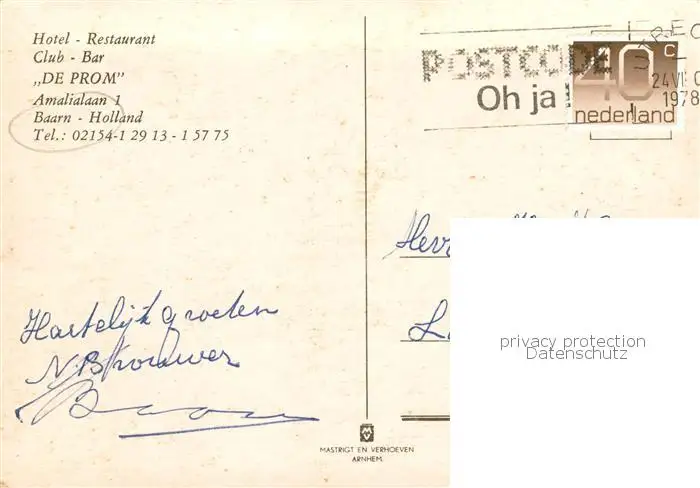 Hotel - Restaurant
Club - Bar
„DE PROM”
Amalialaan 1
Baarn - Holland
Tel.: 02154-1 29 13 - 1 57 75
POSTCODE
Oh ja!
40 c
nederland
24 VII
1978
Hartelijk groeten
N. Brouwer
Baarn
privacy protection
Datenschutz
MASTRIGT EN VERHOEVEN
ARNHEM